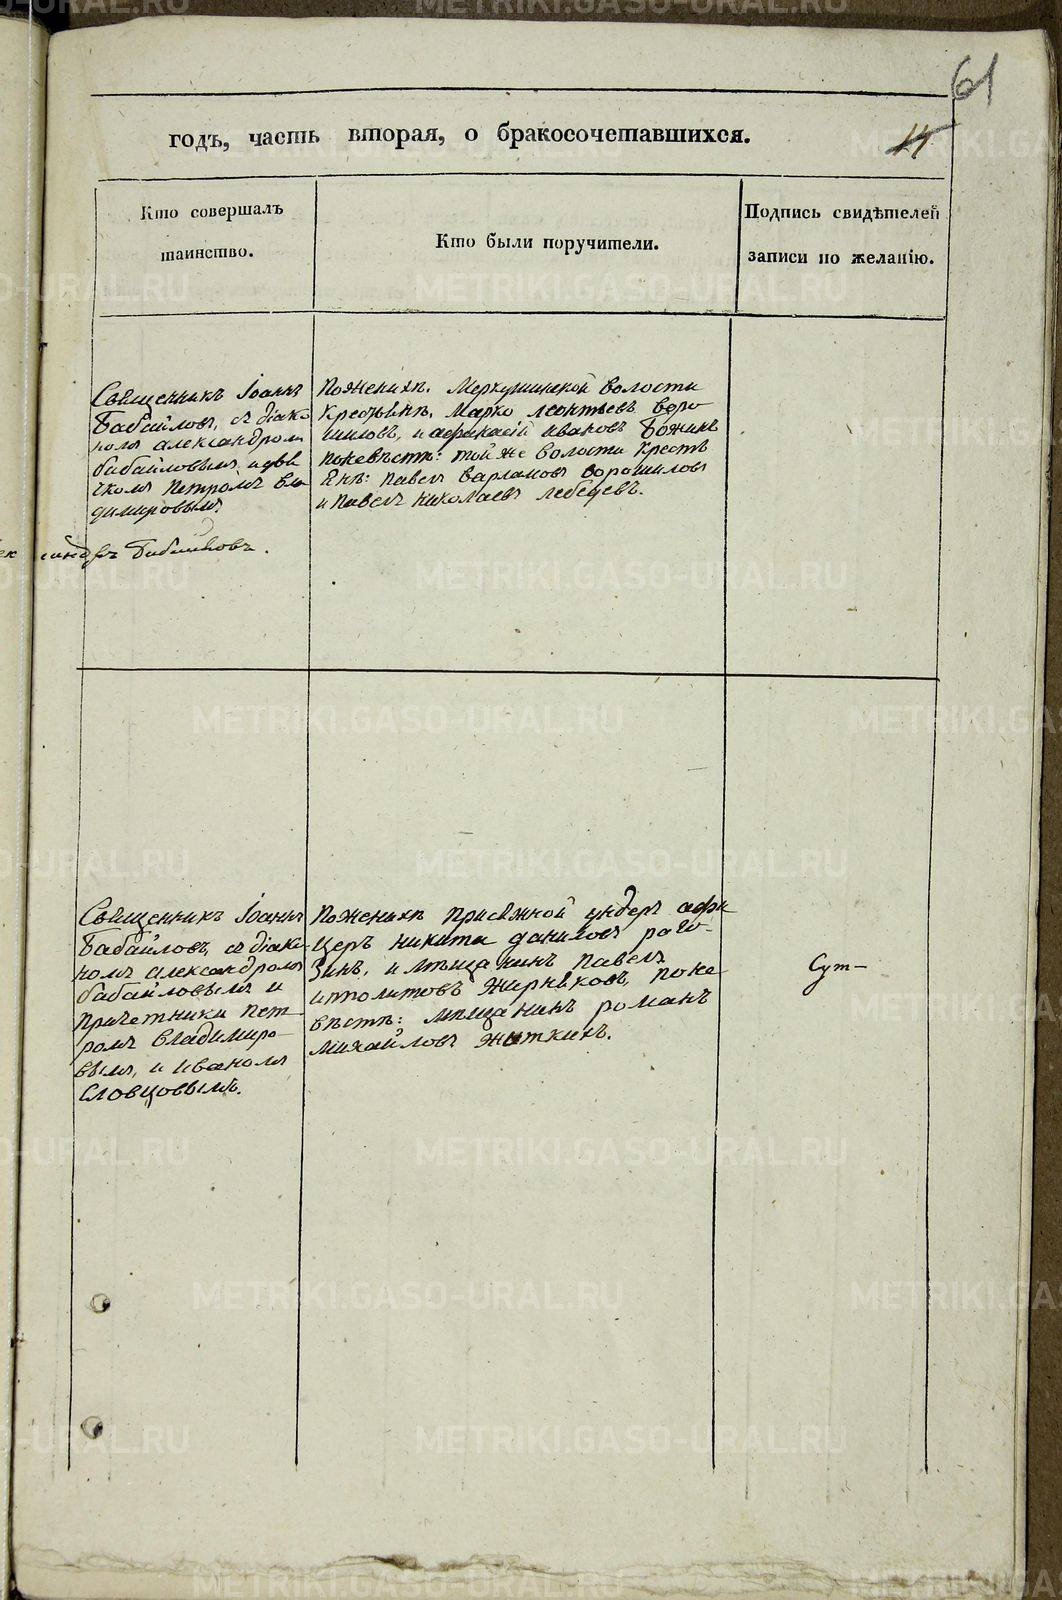 61
годъ, часть вторая, о бракосочетавшихся.
14
Кто совершалъ
таинство.
Кто были поручители.
Подпись свидѣтелей
записи по желанію.
Священникъ Іоаннъ
Бабайловъ, съ діако
номъ александромъ
бабайловымъ, и дьяч
комъ Петромъ Вла
димировымъ.
Поженихѣ. Меркушинской волости
крестьянѣ, Марко леонтьевъ воро
шиловъ, и афанасій ивановъ Божинъ
поневѣстѣ: той же волости Кресть
янѣ: Павелъ варламовъ ворошиловъ
и Павелъ николаевъ лебедевъ.
Священникъ Іоаннъ
Бабайловъ, съ діако-
номъ александромъ
бабайловымъ и
причетники Пет-
ромъ Владимиро-
вымъ, и иваномъ
Словцовымъ.
Поженихѣ присяжной ундеръ афи
церъ никита даниловъ раго-
зинъ, и мѣщанинъ павелъ
ипполитовъ жирняковъ, поне
вѣстѣ: мѣщанинъ романъ
михайловъ житкинъ.
Сут-
METRIKI.GASO-URAL.RU